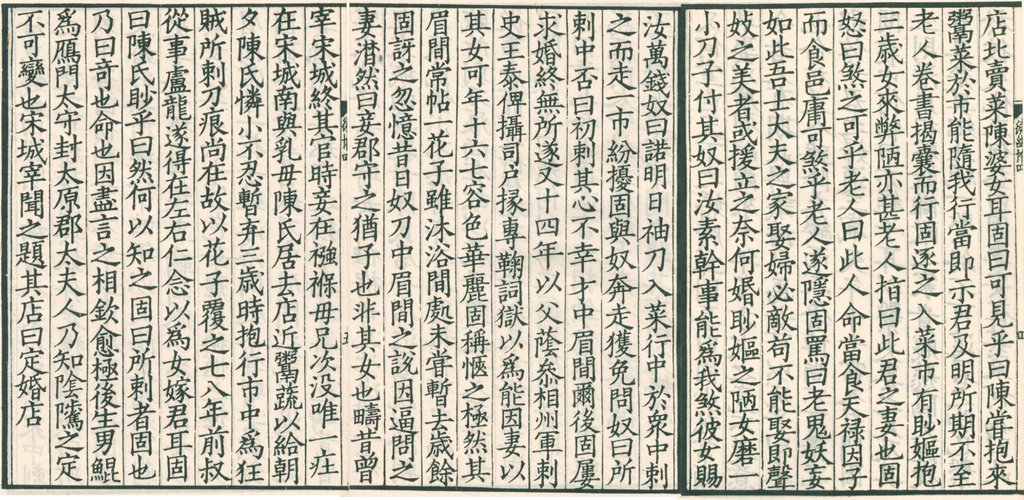 店北賣菜陳婆女耳固曰可見乎曰陳嘗抱來
鬻菜於市能隨我行當即示君及明所期不至
老人卷書揭囊而行固逐之入菜市有眇嫗抱
三歲女來弊陋亦甚老人指曰此君之妻也固
怒曰煞之可乎老人曰此人命當食天禄因子
而食邑庸可煞乎老人遂隱固罵曰老鬼妖妄
如此吾士大夫之家娶婦必敵苟不能娶即聲
妓之美者或援立之奈何婚眇嫗之陋女磨一
小刀子付其奴曰汝素幹事能為我煞彼女賜
汝萬錢奴曰諾明日袖刀入菜行中於衆中刺
之而走一市紛擾固與奴奔走獲免問奴曰所
刺中否曰初刺其心不幸才中眉間爾後固屢
求婚終無所遂又十四年以父蔭叅相州軍刺
史王泰俾攝司戶掾專鞫詞獄以為能因妻以
其女可年十六七容色華麗固稱愜之極然其
眉間常帖一花子雖沐浴間處未嘗暫去歲餘
固訝之忽憶昔日奴刀中眉間之說因逼問之
妻潸然曰妾郡守之猶子也非其女也疇昔曾
宰宋城終其官時妾在襁褓母兄次没唯一庄
在宋城南與乳母陳氏居去店近鬻蔬以給朝
夕陳氏憐小不忍暫弃三歲時抱行市中為狂
賊所刺刀痕尚在故以花子覆之七八年前叔
從事盧龍遂得在左右仁念以為女嫁君耳固
曰陳氏眇乎曰然何以知之固曰所刺者固也
乃曰奇也命也因盡言之相欽愈極後生男鯤
為鴈門太守封太原郡太夫人乃知陰隲之定
不可變也宋城宰聞之題其店曰定婚店